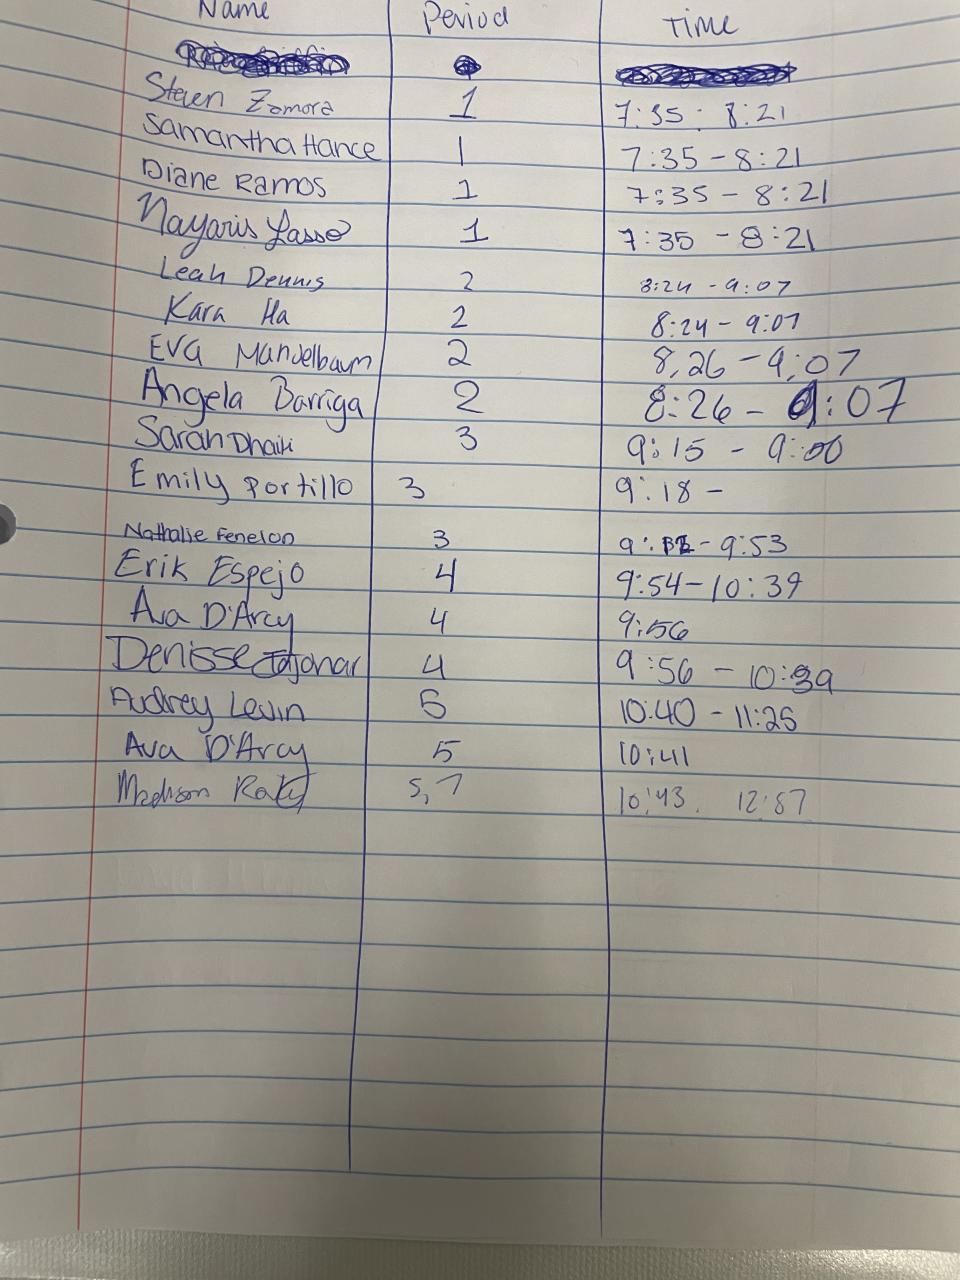 Name Period Time
Steven Zamora 1 7:35 - 8:21
Samantha Hance 1 7:35 - 8:21
Diane Ramos 1 7:35 - 8:21
Nayaris Lasso 1 7:35 - 8:21
Leah Dennis 2 8:24 - 9:07
Kara Ha 2 8:24 - 9:07
Eva Mandelbaum 2 8,26 - 9,07
Angela Barriga 2 8:26 - 9:07
Sarah Dhaiti 3 9:15 - 9:00
Emily Portillo 3 9:18 -
Nathalie Fenelon 3 - 9:53
Erik Espejo 4 9:54 - 10:39
Ava D'Arcy 4 9:56
Denisse 4 9:56 - 10:39
Audrey Levin 5 10:40 - 11:25
Ava D'Arcy 5 10:41
Madison 5, 7 10:43. 12:57